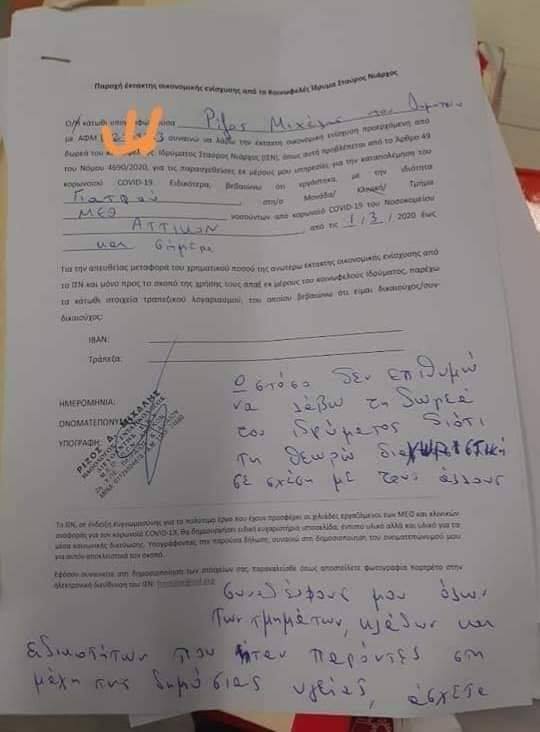 Παροχή έκτακτης οικονομικής ενίσχυσης από το Κοινωφελές Ίδρυμα Σταύρος Νιάρχος
Ο/Η κάτωθι Ρίζος Μιχάλης του
με ΑΦΜ συναινώ να λάβω την έκτακτη οικονομική ενίσχυση προερχόμενη από
δωρεά του Ιδρύματος Σταύρος Νιάρχος (ΙΣΝ), όπως αυτή προβλέπεται από το Άρθρο 49
του Νόμου 4690/2020, για τις παρασχεθείσες εκ μέρους μου υπηρεσίες για την καταπολέμηση του
κορωνοϊού COVID-19. Ειδικότερα, βεβαιώνω ότι εργάστηκα, με την ιδιότητα
Γιατρού, στη/ο Μονάδα/ Κλινική/ Τμήμα
ΜΕΘ νοσούντων από κορωνοϊό COVID-19 του Νοσοκομείου
ΑΤΤΙΚΟΝ, από τις 1/3/2020 έως
και σήμερα
Για την απευθείας μεταφορά του χρηματικού ποσού της ανωτέρω έκτακτης οικονομικής ενίσχυσης από
το ΙΣΝ και μόνο προς το σκοπό της χρήσης τους άπαξ εκ μέρους του κοινωφελούς ιδρύματος, παρέχω
τα κάτωθι στοιχεία τραπεζικού λογαριασμού, του οποίου βεβαιώνω ότι είμαι δικαιούχος/συν-
δικαιούχος:
IBAN:
Τράπεζα:
ΗΜΕΡΟΜΗΝΙΑ:
ΟΝΟΜΑΤΕΠΩΝΥ
ΥΠΟΓΡΑΦΗ:
ΡΙΖΟΣ Δ. ΜΙΧΑΛΗΣ
Ωστόσο δεν επιθυμώ
να λάβω τη δωρεά
του Ιδρύματος διότι
τη θεωρώ διαχωριστική
σε σχέση με τους άλλους
Το ΙΣΝ, σε ένδειξη ευγνωμοσύνης για το πολύτιμο έργο που έχουν προσφέρει οι χιλιάδες εργαζόμενοι των ΜΕΘ και κλινικών
αναφοράς για τον κορωνοϊό COVID-19, θα δημιουργήσει ειδική ευχαριστήρια ιστοσελίδα, έντυπο υλικό αλλά και υλικό για τα
μέσα κοινωνικής δικτύωσης. Υπογράφοντας την παρούσα δήλωση, συναινώ στη δημοσίευση του ονοματεπώνυμού μου
για αυτόν αποκλειστικά τον σκοπό.
Εφόσον συναινείτε στη δημοσίευση των στοιχείων σας, παρακαλείσθε όπως αποστείλετε φωτογραφία πορτρέτο στην
ηλεκτρονική διεύθυνση του ΙΣΝ:
συναδέλφους μου όλων
των τμημάτων, κλάδων και
ειδικοτήτων που ήταν παρόντες στη
μάχη της δημόσιας υγείας, άσχετα